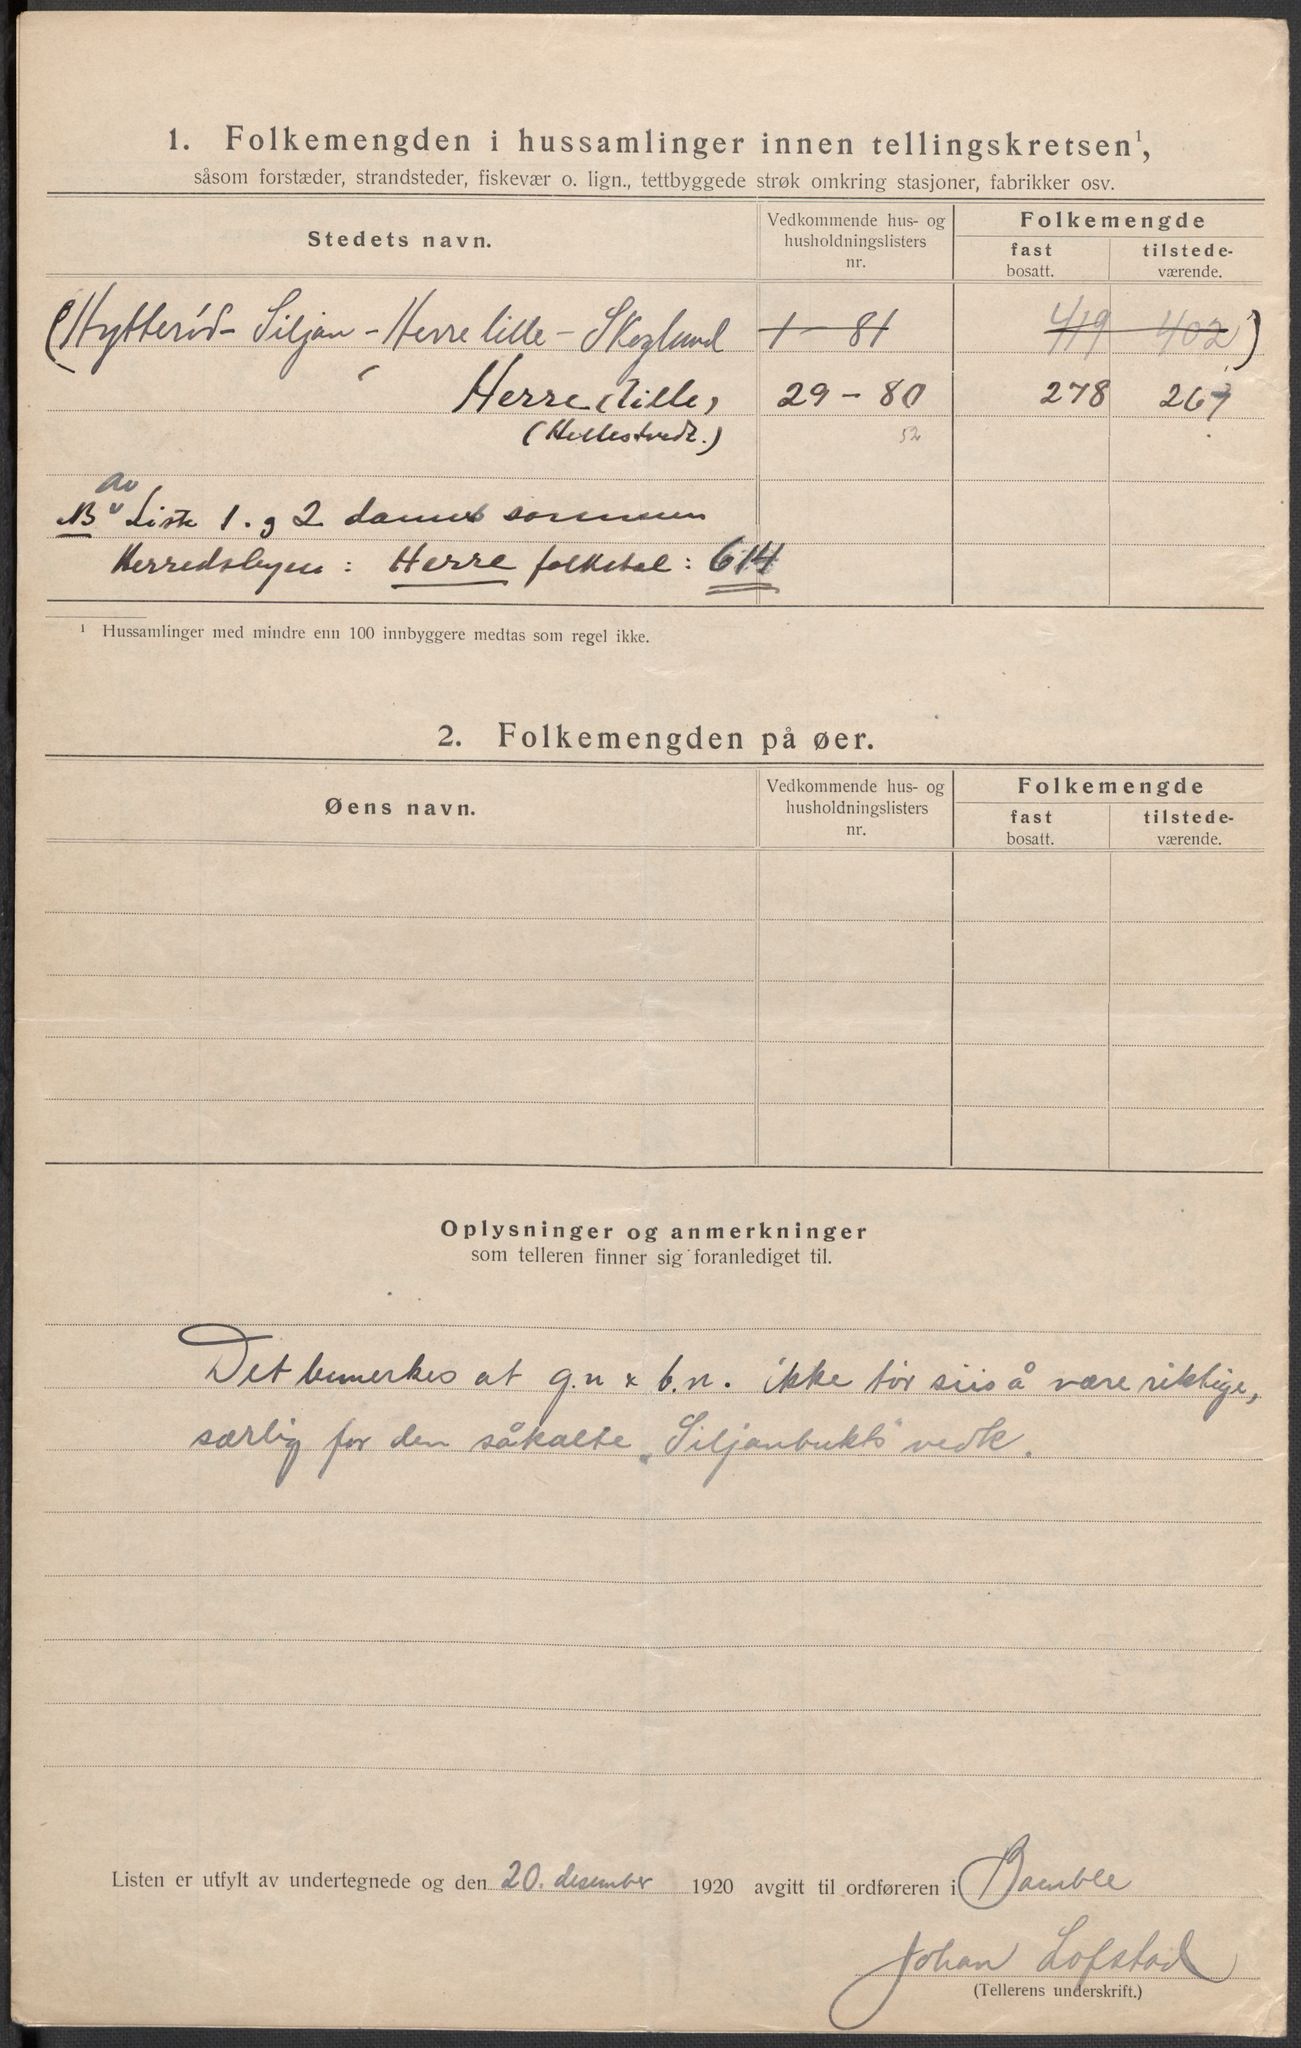 1. Folkemengden i hussamlinger innen tellingskretsen¹,
såsom forstæder, strandsteder, fiskevær o. lign., tettbyggede strøk omkring stasjoner, fabrikker osv.
Stedets navn.
Vedkommende hus- og husholdningslisters nr.
Folkemengde
fast bosatt.
tilstede-værende.
(Hytterød - Siljan - Herre lille - Skoglund 1 - 81 419 402)
Herre (lille, 29 - 80 278 267
(Hellestvedt.) 52
av
NB Liste 1. og 2 dannes sammen
Herredsbyen: Herre folketal: 614
¹ Hussamlinger med mindre enn 100 innbyggere medtas som regel ikke.
2. Folkemengden på øer.
Øens navn.
Vedkommende hus- og husholdningslisters nr.
Folkemengde
fast bosatt.
tilstede-værende.
Oplysninger og anmerkninger
som telleren finner sig foranlediget til.
Det bemerkes at g.n & b.n. ikke tør siis å være riktige,
særlig for den såkalte „Siljanbukts" vedk.
Listen er utfylt av undertegnede og den 20. desember 1920 avgitt til ordføreren i Bamble
Johan Lofstad
(Tellerens underskrift.)